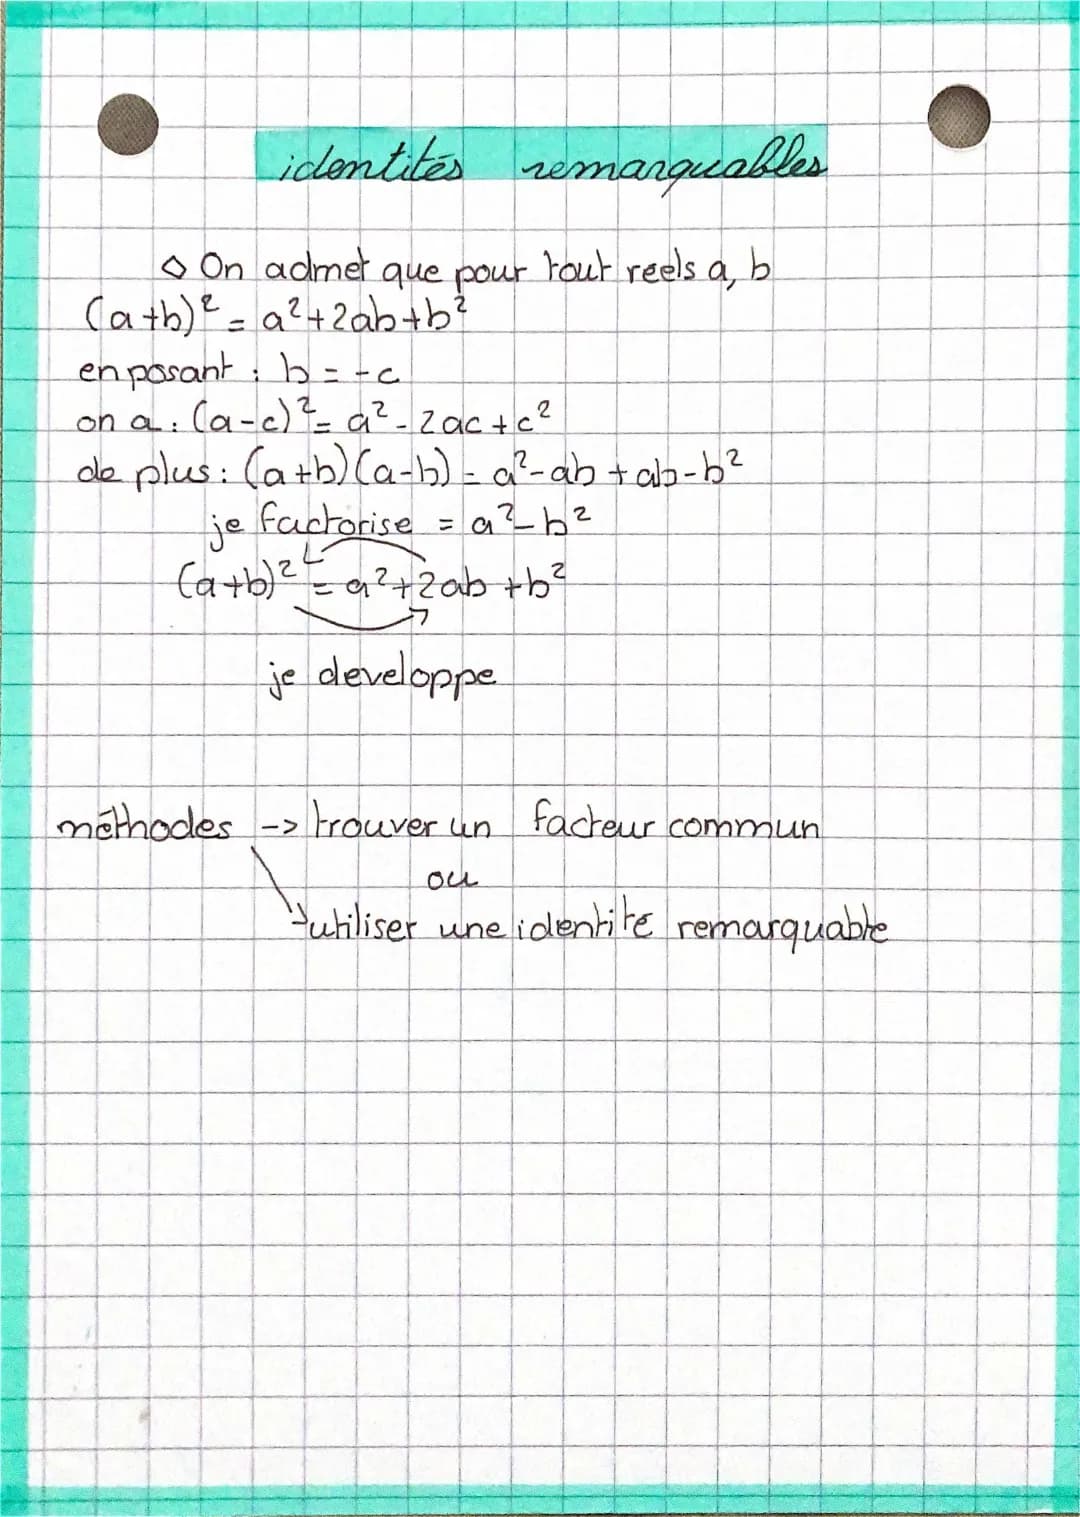 identités remarquables
◇ On admet que pour tout reels a, b
(a+b)² = a²+2ab+b²
en posant : b = -c
on a : (a-c)² = a² - 2ac + c²
de plus : (a+b)(a-b) = a²-ab + ab-b²
je factorise = a²-b²
(a+b)² = a²+2ab +b²
je developpe
méthodes -> trouver un facteur commun
ou
utiliser une identité remarquable